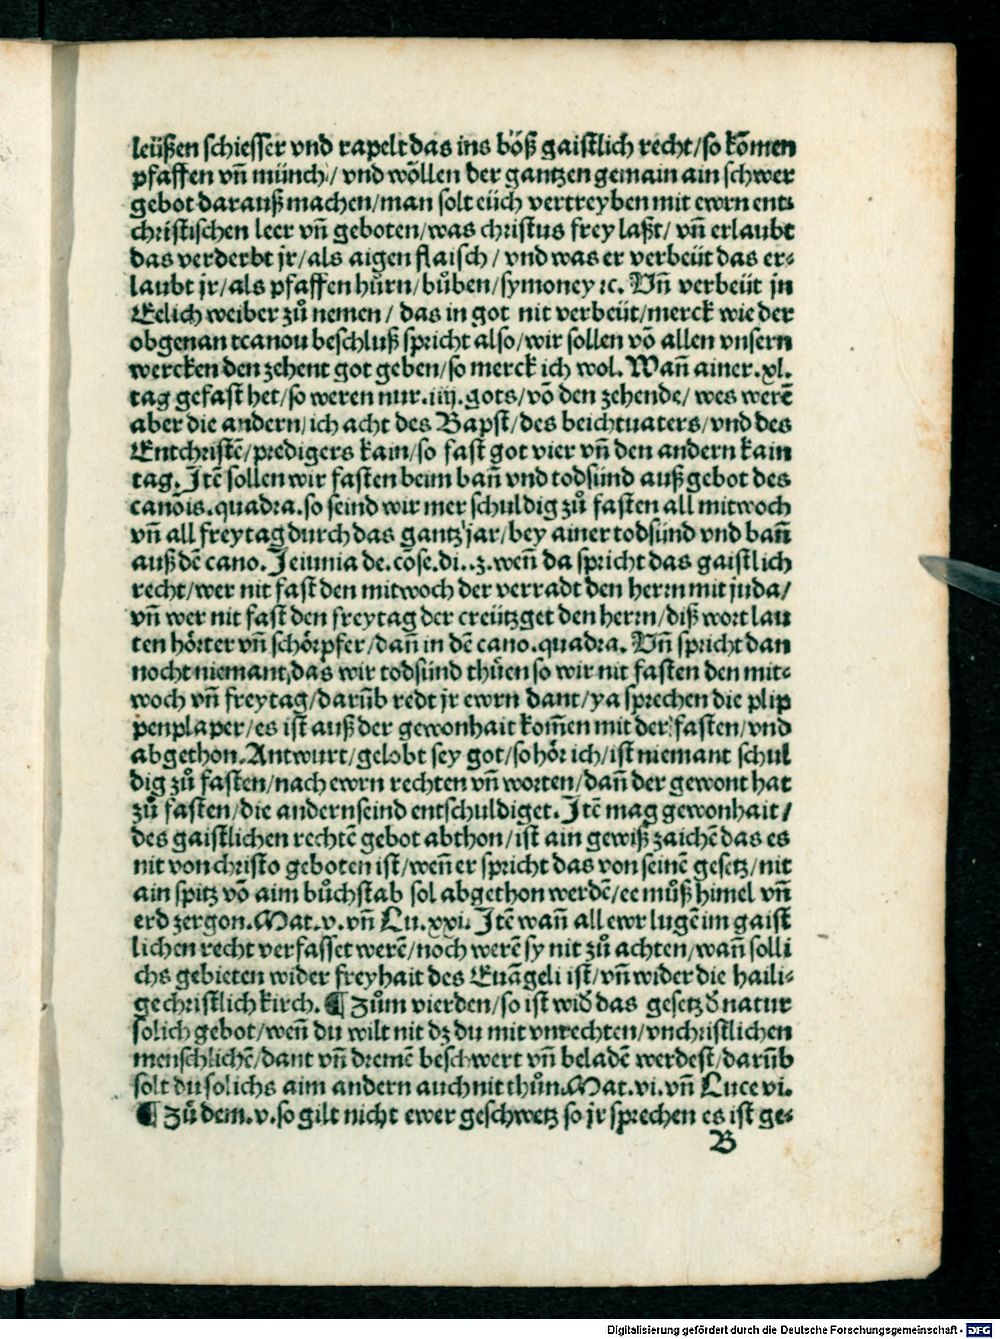 leüßen schiesser vnd rapelt das ins böß gaistlich recht/so kōmen
pfaffen vñ münch/ vnd wöllen der gantzen gemain ain schwer
gebot darauß machen/man solt eüch vertreyben mit ewrn ent⸗
christischen leer vñ geboten/was christus frey laßt/ vñ erlaubt
das verderbt jr/als aigen flaisch/ vnd was er verbeüt das er⸗
laubt jr/als pfaffen hůrn/bůben/symoney ꝛc. Vñ verbeüt jn
Eelich weiber zů nemen/ das in got nit verbeüt/merck wie der
obgenan tcanou beschluß spricht also/wir sollen vō allen vnsern
wercken den zehent got geben/so merck ich wol. Wañ ainer .xl.
tag gefast het/so weren nur .iiij. gots/vō den zehende/ wes werē
aber die andern/ich acht des Bapst/des beichtuaters/vnd des
Entchristē/predigers kain/so fast got vier vñ den andern kain
tag. Jtē sollen wir fasten beim bañ vnd todsünd auß gebot des
canōis. quadra. so seind wir mer schuldig zů fasten all mitwoch
vñ all freytag durch das gantz jar/bey ainer todsünd vnd bañ
auß dē cano. Jeiunia de. cōse. di. .3. weñ da spricht das gaistlich
recht/wer nit fast den mitwoch der verradt den herrn mit juda/
vñ wer nit fast den freytag der creützget den herrn/diß wort lau
ten hörter vñ schörpfer/dañ in dē cano. quadra. Vñ spricht dan
nocht niemant/das wir todsünd thüen so wir nit fasten den mit⸗
woch vñ freytag/darūb redt jr ewrn dant/ya sprechen die plip
penplaper/es ist auß der gewonhait kom̄en mit der fasten/vnd
abgethon. Antwurt/gelobt sey got/so hör ich/ist niemant schul
dig zů fasten/nach ewrn rechten vñ worten/dañ der gewont hat
zů fasten/die andern seind entschuldiget. Jtē mag gewonhait/
des gaistlichen rechtē gebot abthon/ist ain gewiß zaichē das es
nit von christo geboten ist/weñ er spricht das von seinē gesetz/nit
ain spitz vō aim bůchstab sol abgethon werdē/ee můß himel vñ
erd zergon. Mat. v. vñ Lu. xxi. Jtē wañ all ewr lugē im gaist
lichen recht verfasset werē/noch werē sy nit zů achten/wañ solli
chs gebieten wider freyhait des Euāgeli ist/vñ wider die haili⸗
ge christlich kirch. ¶ Zům vierden/so ist wið das gesetz ð natur
solich gebot/weñ du wilt nit dz du mit vnrechten/vnchristlichen
menschlichē/dant vñ dremē beschwert vñ beladē werdest/darūb
solt du solichs aim andern auch nit thůn. Mat. vi. vñ Luce vi.
¶ Zů dem .v. so gilt nicht ewer geschwetz so jr sprechen es ist ge⸗
B
Digitalisierung gefördert durch die Deutsche Forschungsgemeinschaft - DFG